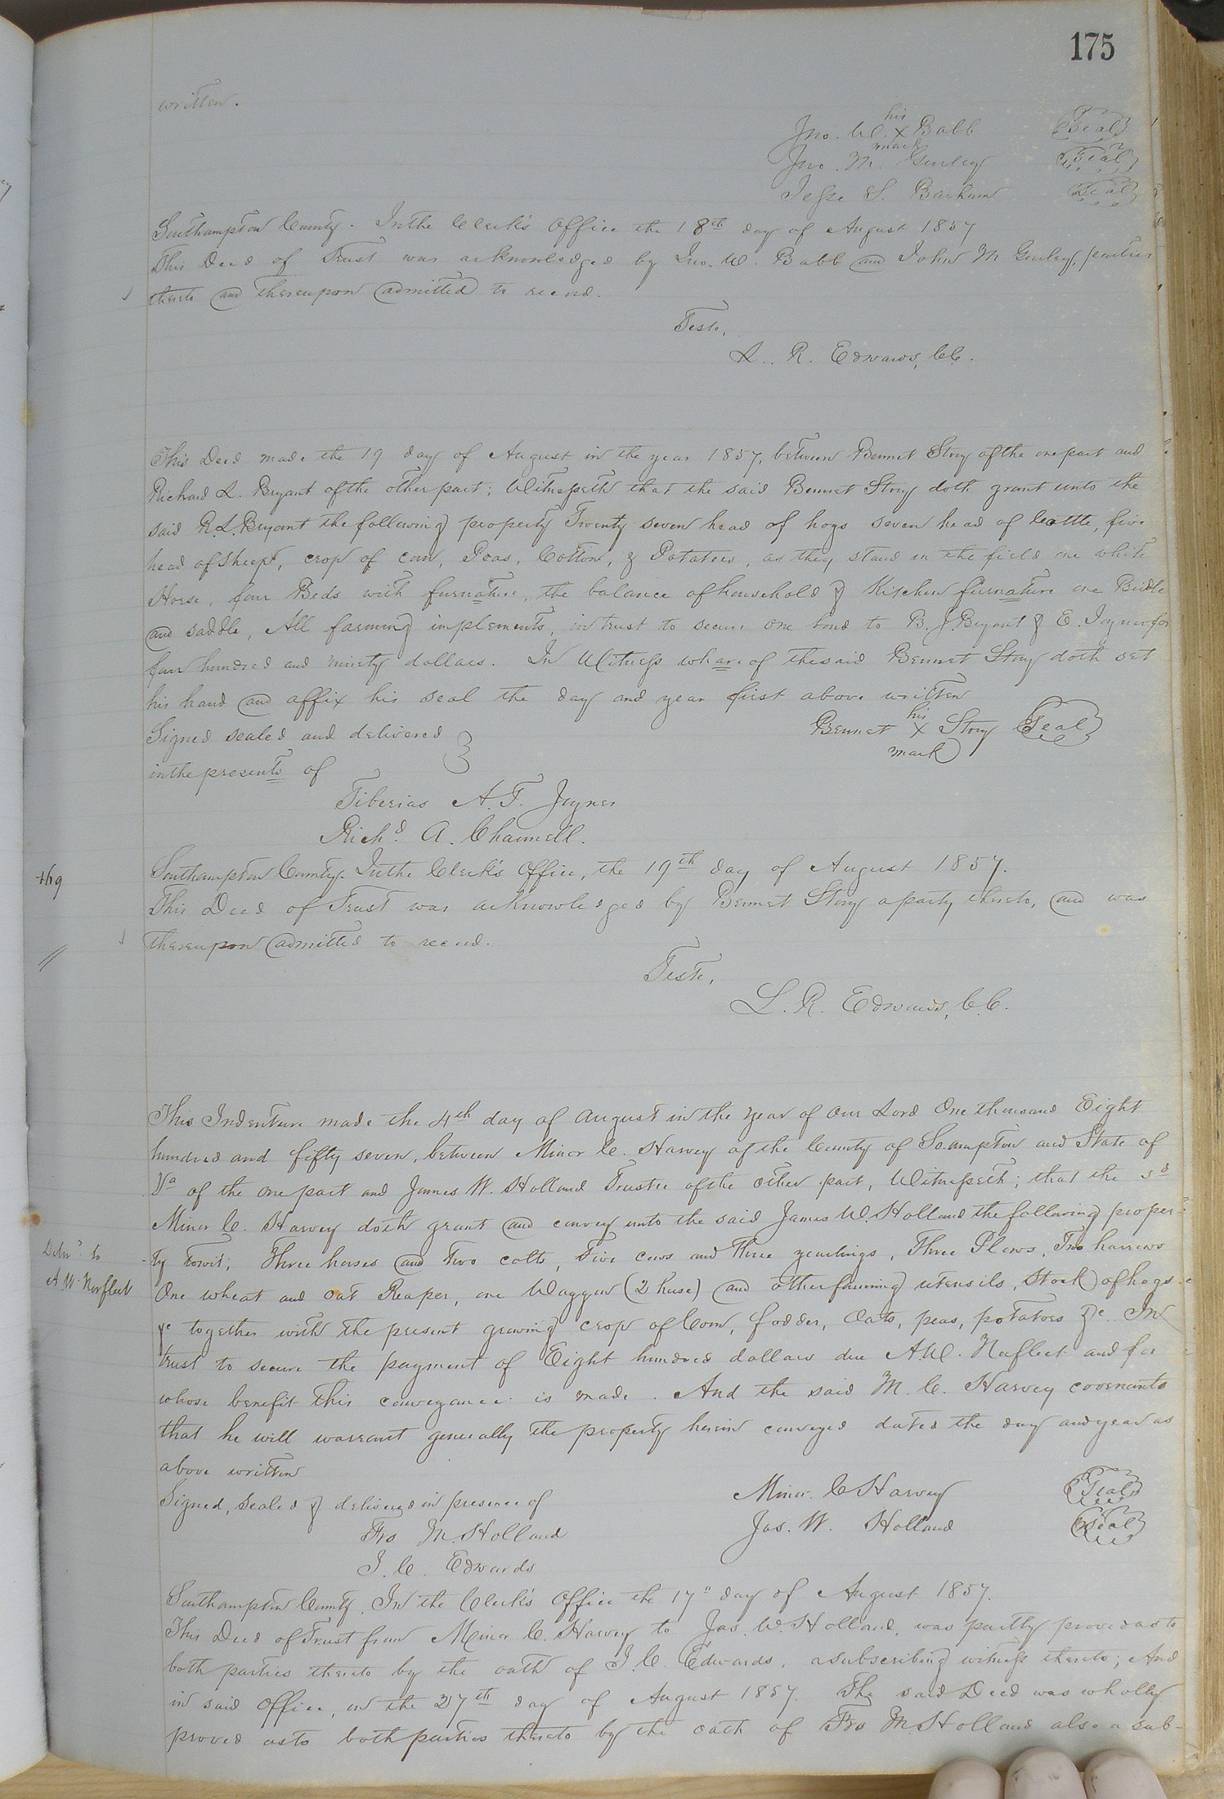 175
written.
Jno. W. his x mark Babb Seal
Jno. M. Gurley Seal
Jesse S. Barham Seal
Southampton County. In the Clerk's Office the 18th day of August 1857
This Deed of Trust was acknowledged by Jno. W. Babb and John M Gurley, parties
thereto and thereupon admitted to record.
Teste,
L. R. Edwards, C.C.
This Deed made the 19 day of August in the year 1857, between Bennet Story of the one part and
Richard L. Bryant of the other part; Witnesseth that the said Bennet Story doth grant unto the
said R. L. Bryant the following property Twenty seven head of hogs seven head of Cattle, five
head of sheep, crop of corn, Peas, Cotton, & Potatoes, as they stand in the field one white
Horse, four Beds with furnature, the balance of household & Kitchen furnature one Bridle
and saddle, All farming implements, in trust to secure one bond to B. J. Bryant & E. Joyner for
four hundred and ninety dollars. In Witness whareof the said Bennet Story doth set
his hand and affix his seal the day and year first above written
Signed sealed and delivered Bennet his x mark Story Seal
in the presents of
Tiberias A. F. Joyner
Richd. A. Channell.
Southampton County. In the Clerk's Office, the 19th day of August 1857.
This Deed of Trust was acknowledged by Bennet Story a party thereto, and was
thereupon admitted to record.
Teste,
L. R. Edwards, C.C.
This Indenture made the 4th day of August in the year of our Lord One thousand Eight
hundred and fifty seven, between Minor C. Harvey of the County of So.ampton and State of
Va of the one part and James W. Holland Trustee of the other part, Witnesseth; that the sd
Minor C. Harvey doth grant and convey unto the said James W. Holland the following proper-
Delivd. to
A. W. Norfleet
ty towit; Three horses and two colts, Five cows and three yearlings, Three Plows, Two harrows
One wheat and oat Reaper, one Waggon (2 horse) and other farming utensils, Stock of hogs
&c together with the present growing crop of Corn, fodder, Oats, peas, potatoes &c. In
trust to secure the payment of Eight hundred dollars due A.W. Nofleet and for
whose benefit this conveyance is made. And the said M. C. Harvey covenants
that he will warrant generally the property herein conveyed dated the day and year as
above written
Signed, Sealed & delivered in presence of Minor C Harvey Seal
Fro M. Holland Jas. W. Holland Seal
J. C. Edwards
Southampton County. In the Clerk's Office the 17" day of August 1857.
This Deed of Trust from Minor C. Harvey to Jas. W. Holland, was partly proved as to
both parties thereto by the oath of J. C. Edwards, a subscribing witness thereto; And
in said Office, on the 27th day of August 1857. The said Deed was wholly
proved as to both parties thereto by the oath of Fro M Holland also a sub-